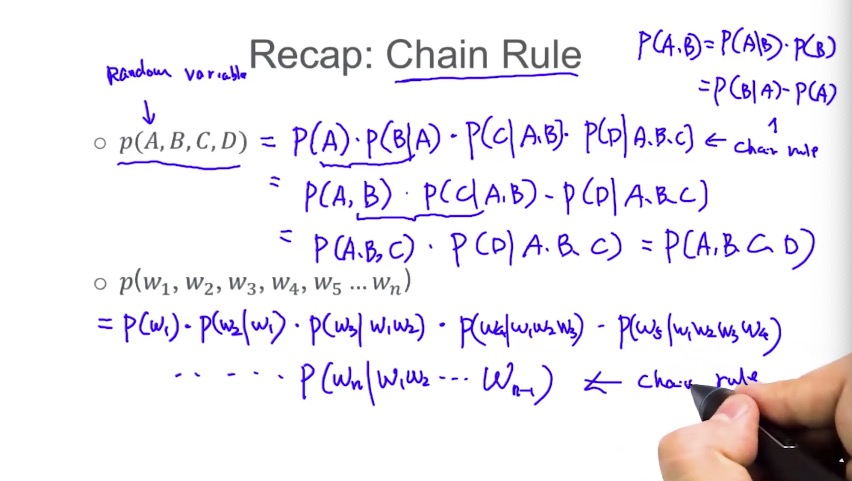 Recap: Chain Rule
P(A,B) = P(A|B)·P(B)
= P(B|A)·P(A)
↑
chain rule
Random variable
↓
○ p(A, B, C, D) = P(A)·P(B|A)·P(C|A.B)·P(D|A.B.C) ←
= P(A, B)·P(C|A.B)·P(D|A.B.C)
= P(A.B,C)·P(D|A.B.C) = P(A,B.C.D)
○ p(w₁, w₂, w₃, w₄, w₅ … wₙ)
= P(w₁)·P(w₂|w₁)·P(w₃|w₁w₂)·P(w₄|w₁w₂w₃)·P(w₅|w₁w₂w₃w₄)
······ P(wₙ|w₁w₂ ··· wₙ₋₁) ← chain rule